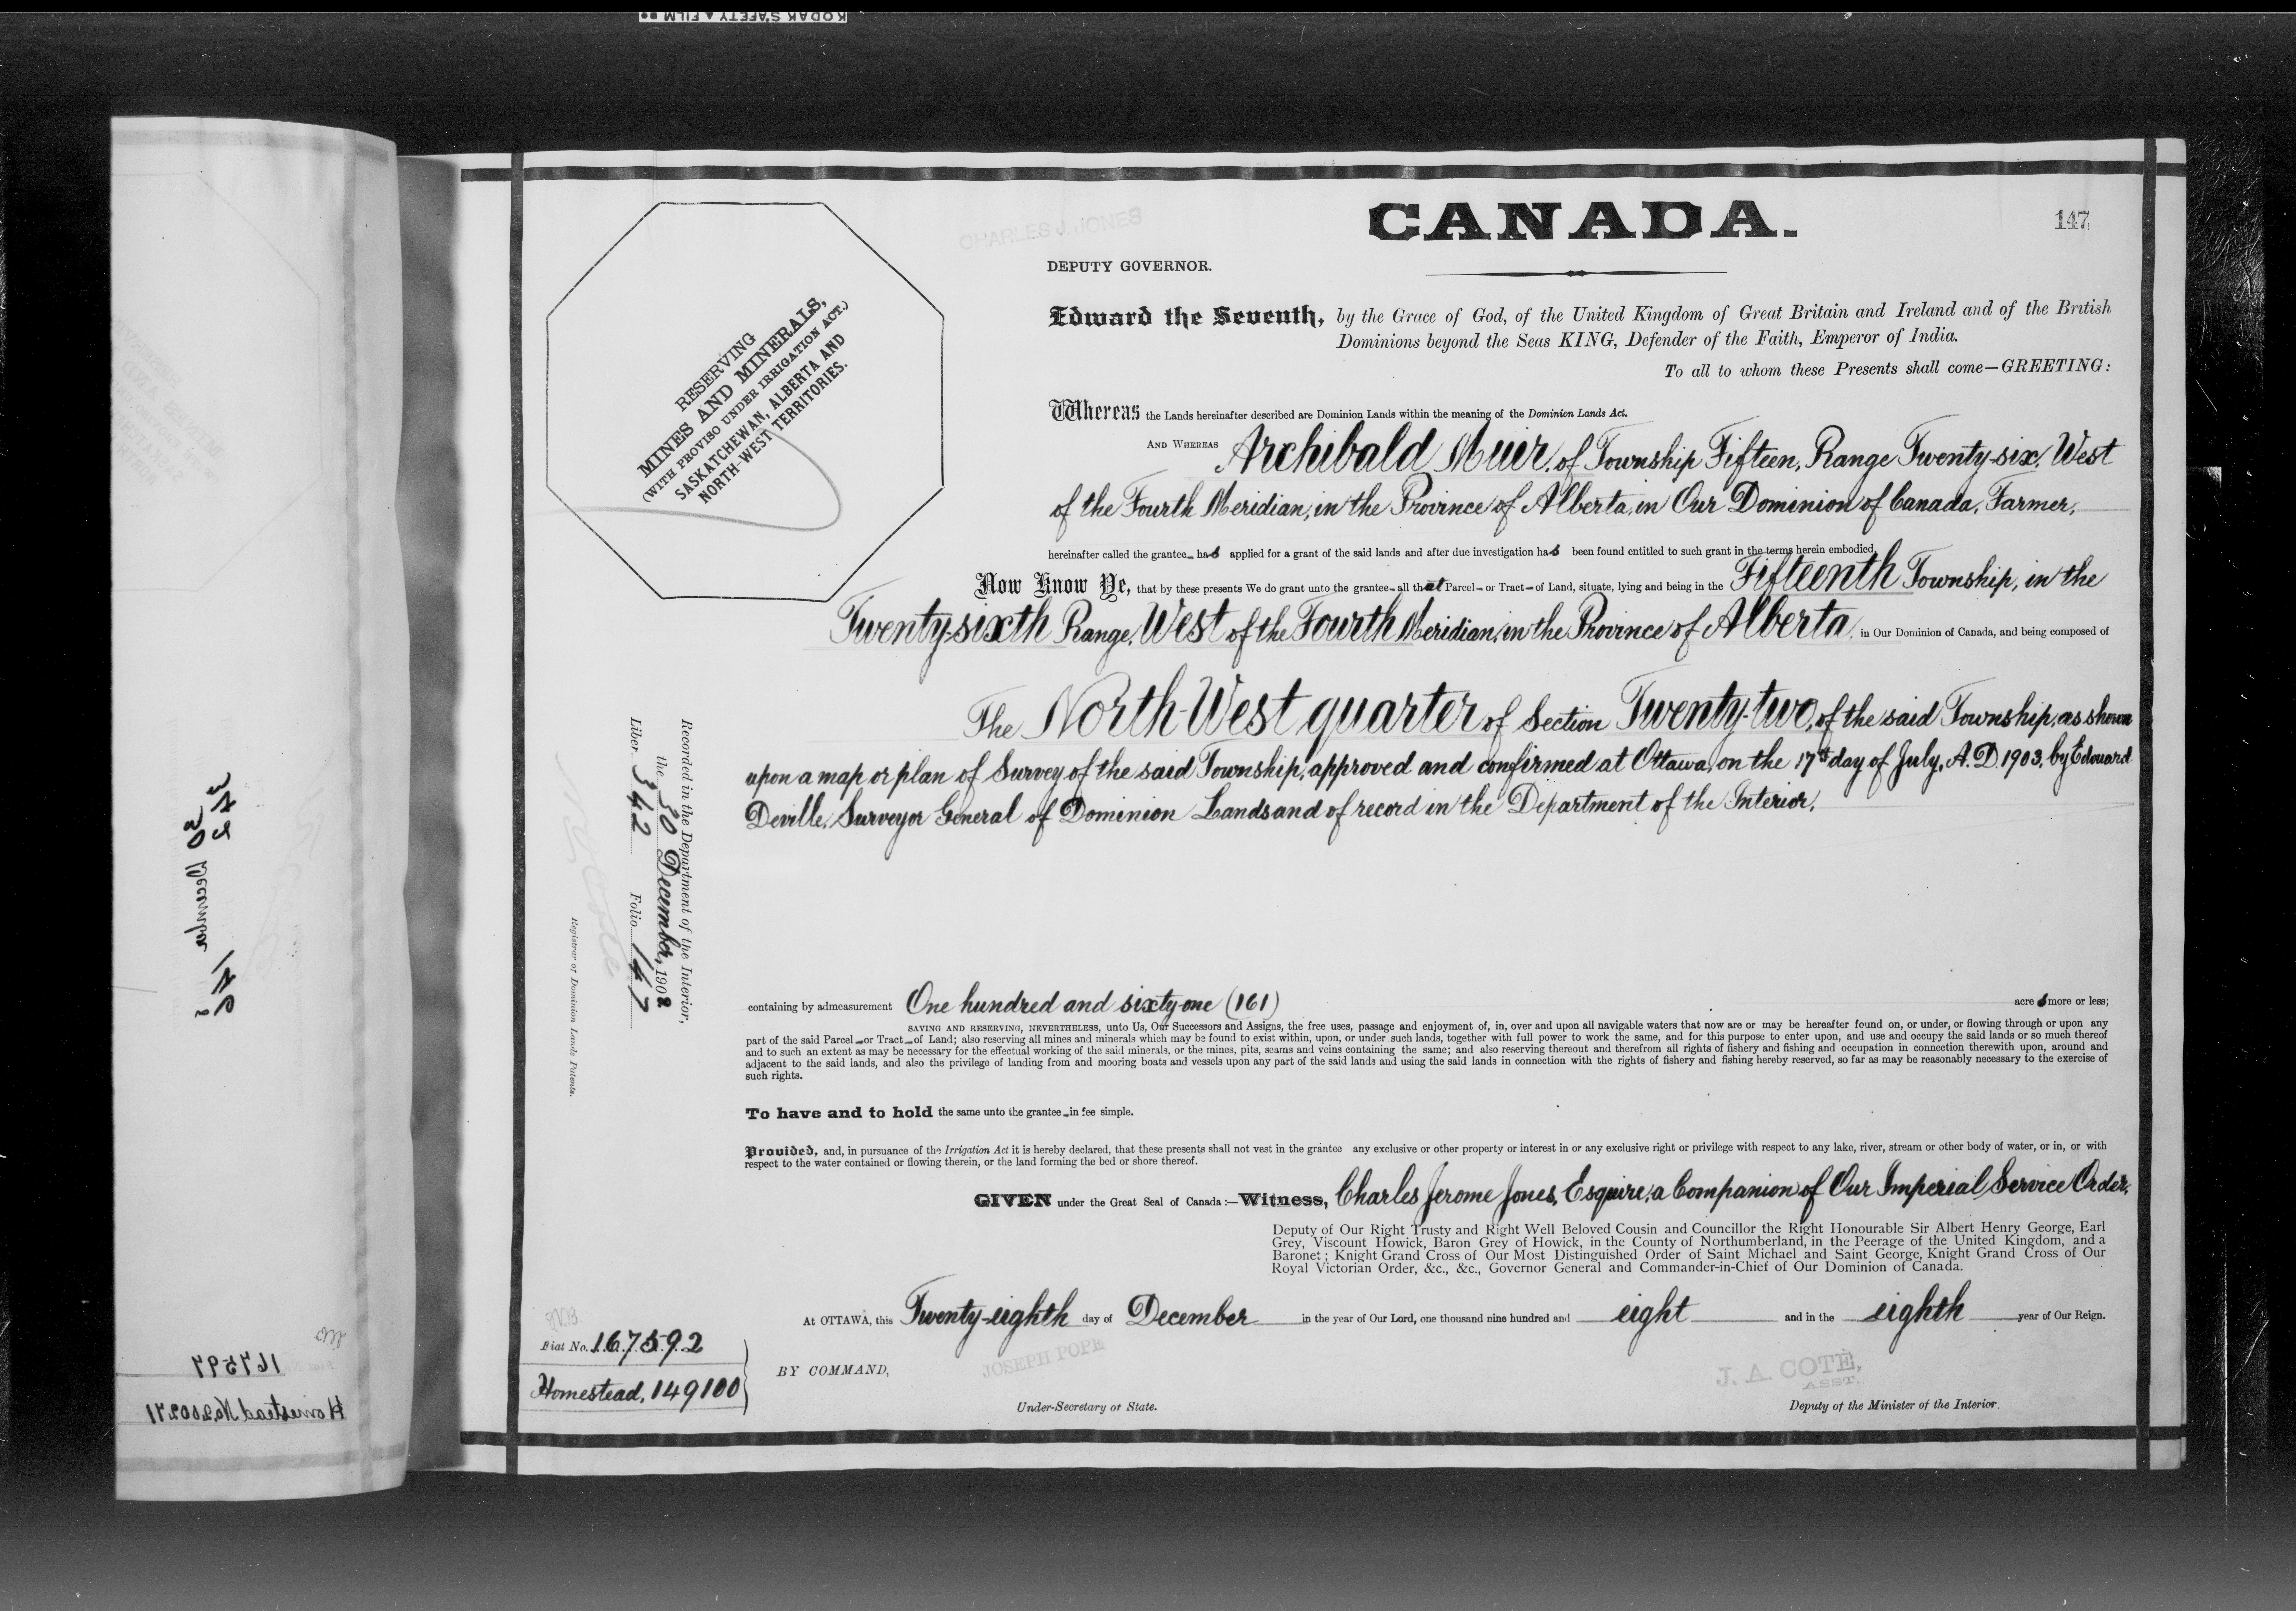 KODAK SAFETY ▲ FILM
CHARLES J. JONES
CANADA.
147
DEPUTY GOVERNOR.
Edward the Seventh, by the Grace of God, of the United Kingdom of Great Britain and Ireland and of the British
Dominions beyond the Seas KING, Defender of the Faith, Emperor of India.
To all to whom these Presents shall come—GREETING:
RESERVING
MINES AND MINERALS,
(WITH PROVISO UNDER IRRIGATION ACT.)
SASKATCHEWAN, ALBERTA AND
NORTH-WEST TERRITORIES.
Whereas the Lands hereinafter described are Dominion Lands within the meaning of the Dominion Lands Act.
AND WHEREAS Archibald Muir, of Township Fifteen, Range Twenty-six, West
of the Fourth Meridian, in the Province of Alberta, in Our Dominion of Canada, Farmer,
hereinafter called the grantee has applied for a grant of the said lands and after due investigation has been found entitled to such grant in the terms herein embodied.
Now Know Ye, that by these presents We do grant unto the grantee all that Parcel or Tract of Land, situate, lying and being in the Fifteenth Township, in the
Twenty-sixth Range, West of the Fourth Meridian, in the Province of Alberta, in Our Dominion of Canada, and being composed of
The North-West quarter of Section Twenty-two, of the said Township, as shown
upon a map or plan of Survey of the said Township, approved and confirmed at Ottawa, on the 17th day of July, A.D. 1903, by Edouard
Deville, Surveyor General of Dominion Lands and of record in the Department of the Interior.
Recorded in the Department of the Interior,
the 30 December, 1908
Liber 342 Folio 147
Registrar of Dominion Lands Patents.
containing by admeasurement One hundred and sixty-one (161) acres more or less;
SAVING AND RESERVING, NEVERTHELESS, unto Us, Our Successors and Assigns, the free uses, passage and enjoyment of, in, over and upon all navigable waters that now are or may be hereafter found on, or under, or flowing through or upon any
part of the said Parcel or Tract of Land; also reserving all mines and minerals which may be found to exist within, upon, or under such lands, together with full power to work the same, and for this purpose to enter upon, and use and occupy the said lands or so much thereof
and to such an extent as may be necessary for the effectual working of the said minerals, or the mines, pits, seams and veins containing the same; and also reserving thereout and therefrom all rights of fishery and fishing and occupation in connection therewith upon, around and
adjacent to the said lands, and also the privilege of landing from and mooring boats and vessels upon any part of the said lands and using the said lands in connection with the rights of fishery and fishing hereby reserved, so far as may be reasonably necessary to the exercise of
such rights.
To have and to hold the same unto the grantee in fee simple.
Provided, and, in pursuance of the Irrigation Act it is hereby declared, that these presents shall not vest in the grantee any exclusive or other property or interest in or any exclusive right or privilege with respect to any lake, river, stream or other body of water, or in, or with
respect to the water contained or flowing therein, or the land forming the bed or shore thereof.
GIVEN under the Great Seal of Canada:—Witness, Charles Jerome Jones, Esquire, a Companion of Our Imperial Service Order,
Deputy of Our Right Trusty and Right Well Beloved Cousin and Councillor the Right Honourable Sir Albert Henry George, Earl
Grey, Viscount Howick, Baron Grey of Howick, in the County of Northumberland, in the Peerage of the United Kingdom, and a
Baronet; Knight Grand Cross of Our Most Distinguished Order of Saint Michael and Saint George, Knight Grand Cross of Our
Royal Victorian Order, &c., &c., Governor General and Commander-in-Chief of Our Dominion of Canada.
At OTTAWA, this Twenty-eighth day of December in the year of Our Lord, one thousand nine hundred and eight and in the eighth year of Our Reign.
Fiat No. 167592
Homestead, 149100
BY COMMAND,
JOSEPH POPE
Under-Secretary of State.
J. A. COTÉ,
ASST.
Deputy of the Minister of the Interior.